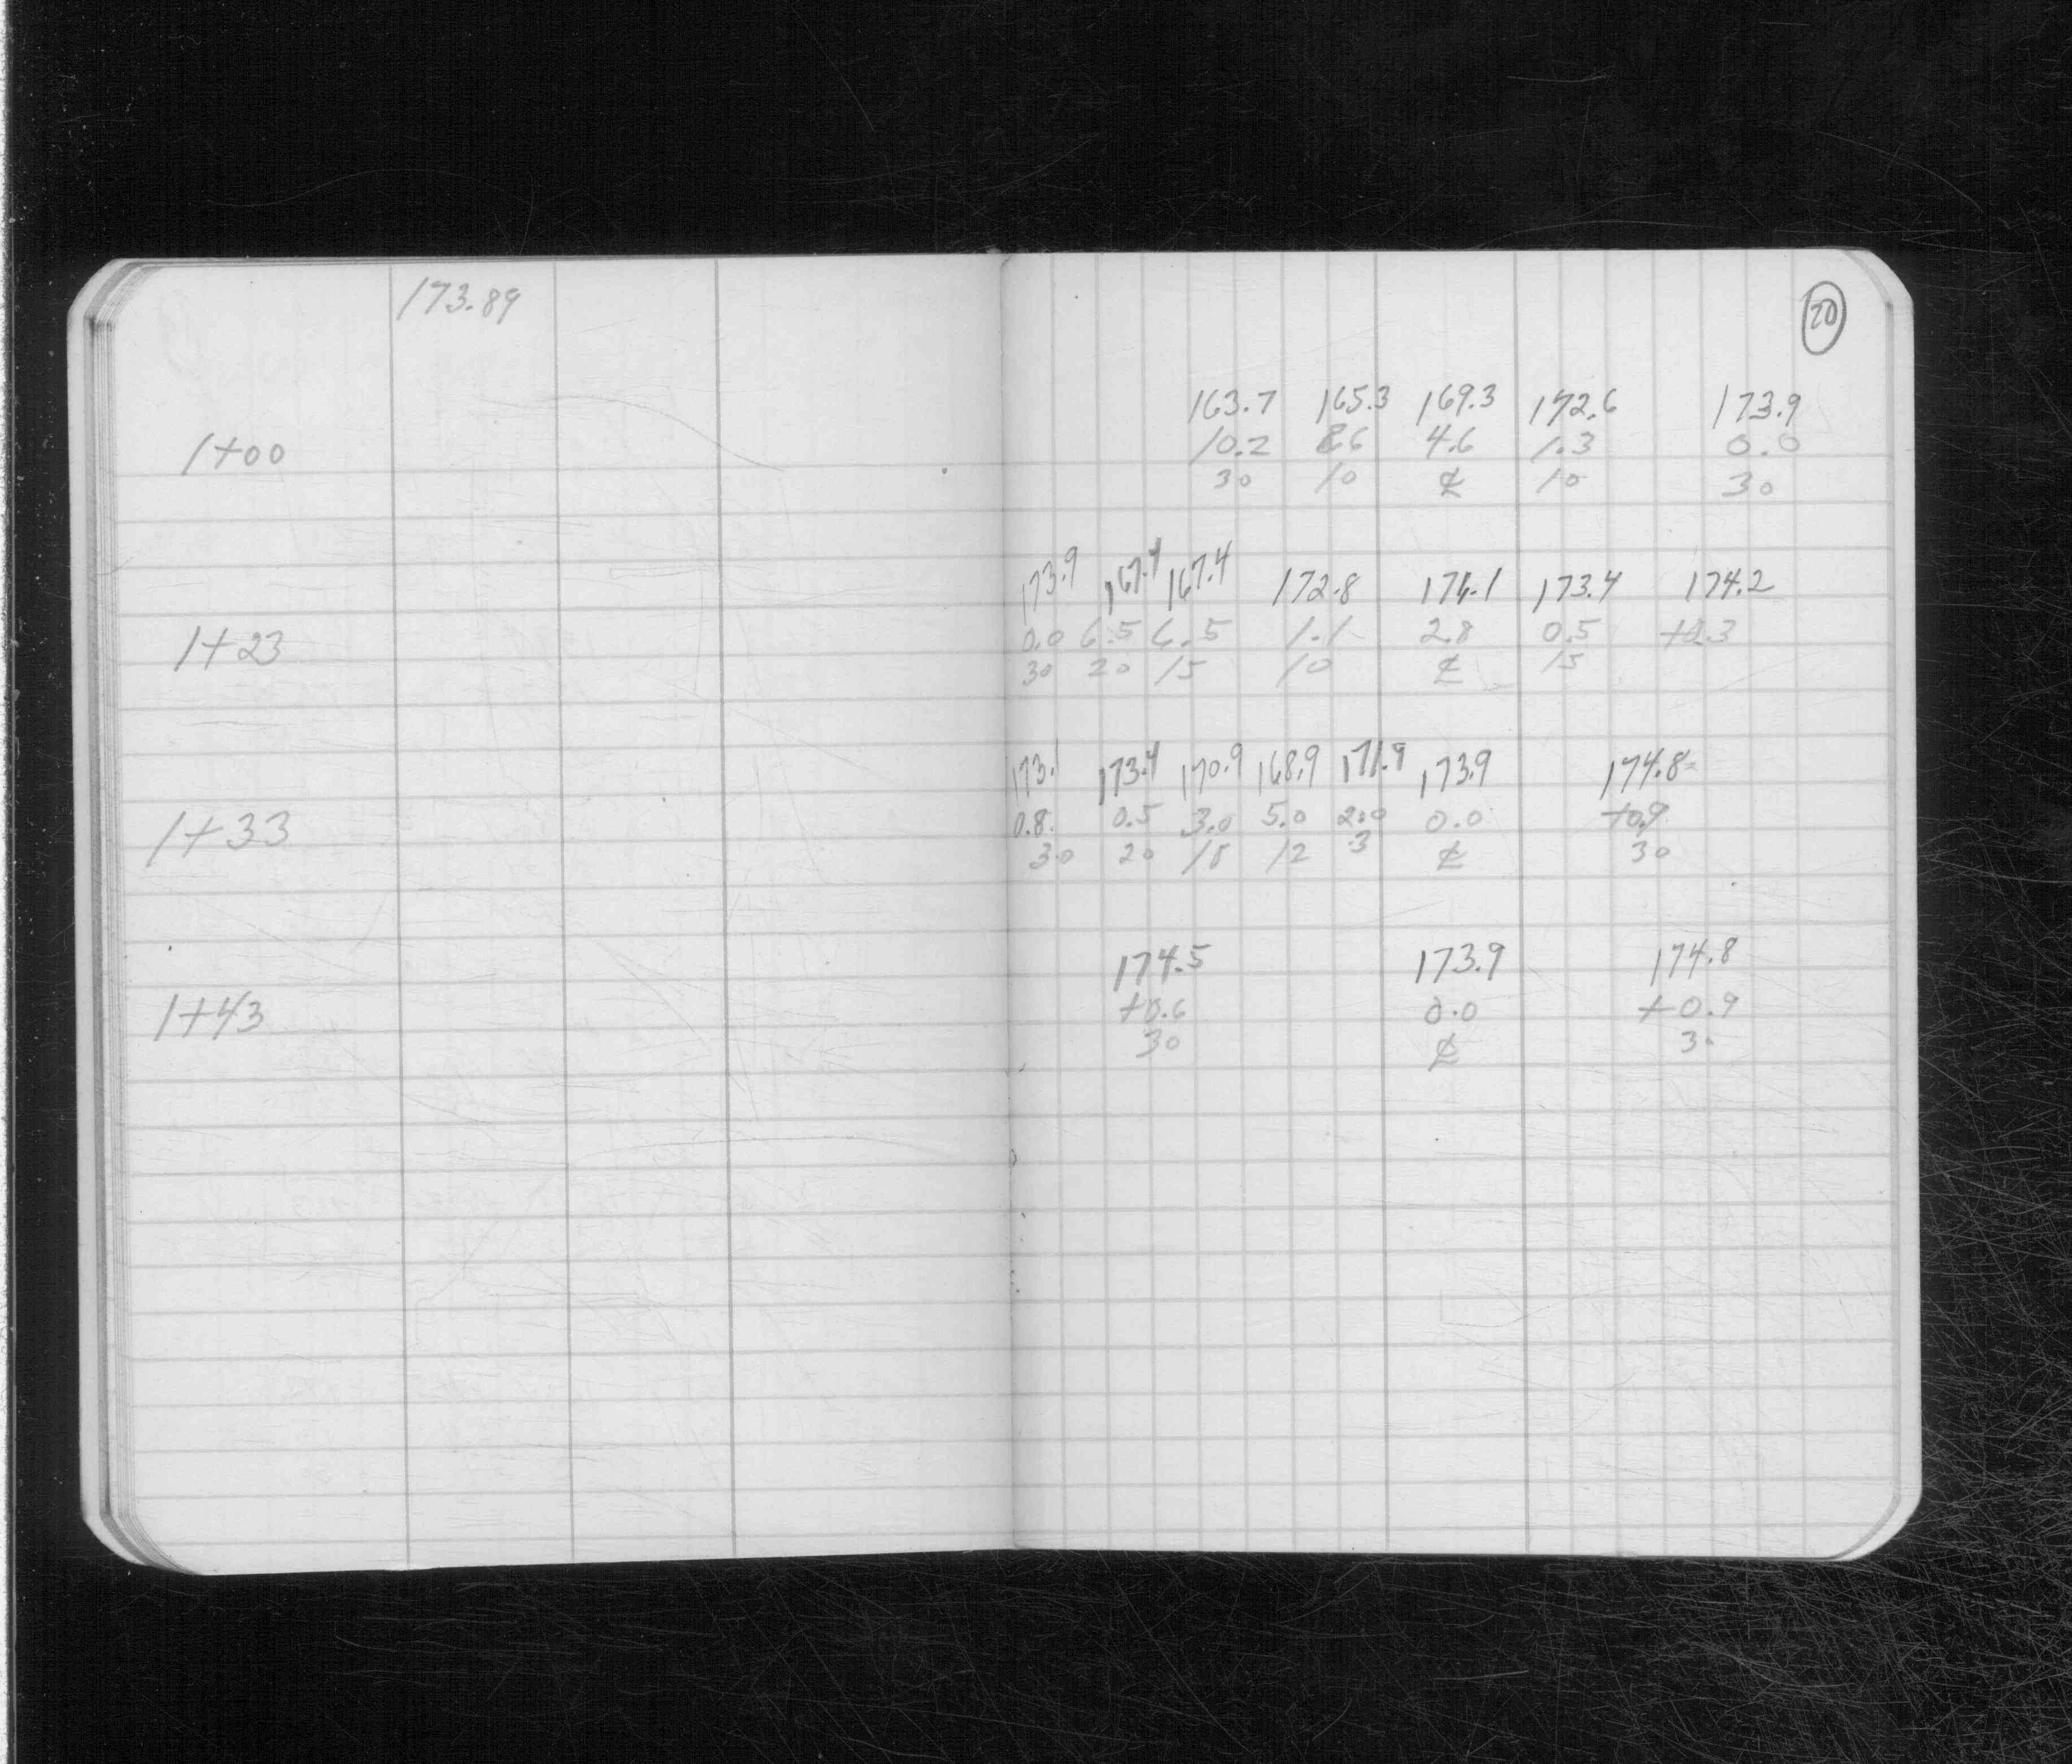 173.89
20
163.7 165.3 169.3 172.6 173.9
1+00 10.2 8.6 4.6 1.3 0.0
30 10 ℄ 10 30
173.9 167.4 167.4 172.8 171.1 173.4 174.2
1+23 0.0 6.5 6.5 1.1 2.8 0.5 +0.3
30 20 15 10 ℄ 15
173.1 173.4 170.9 168.9 171.9 173.9 174.8
1+33 0.8 0.5 3.0 5.0 2.0 0.0 +0.9
30 20 18 12 3 ℄ 30
174.5 173.9 174.8
1+43 +0.6 0.0 +0.9
30 ℄ 30